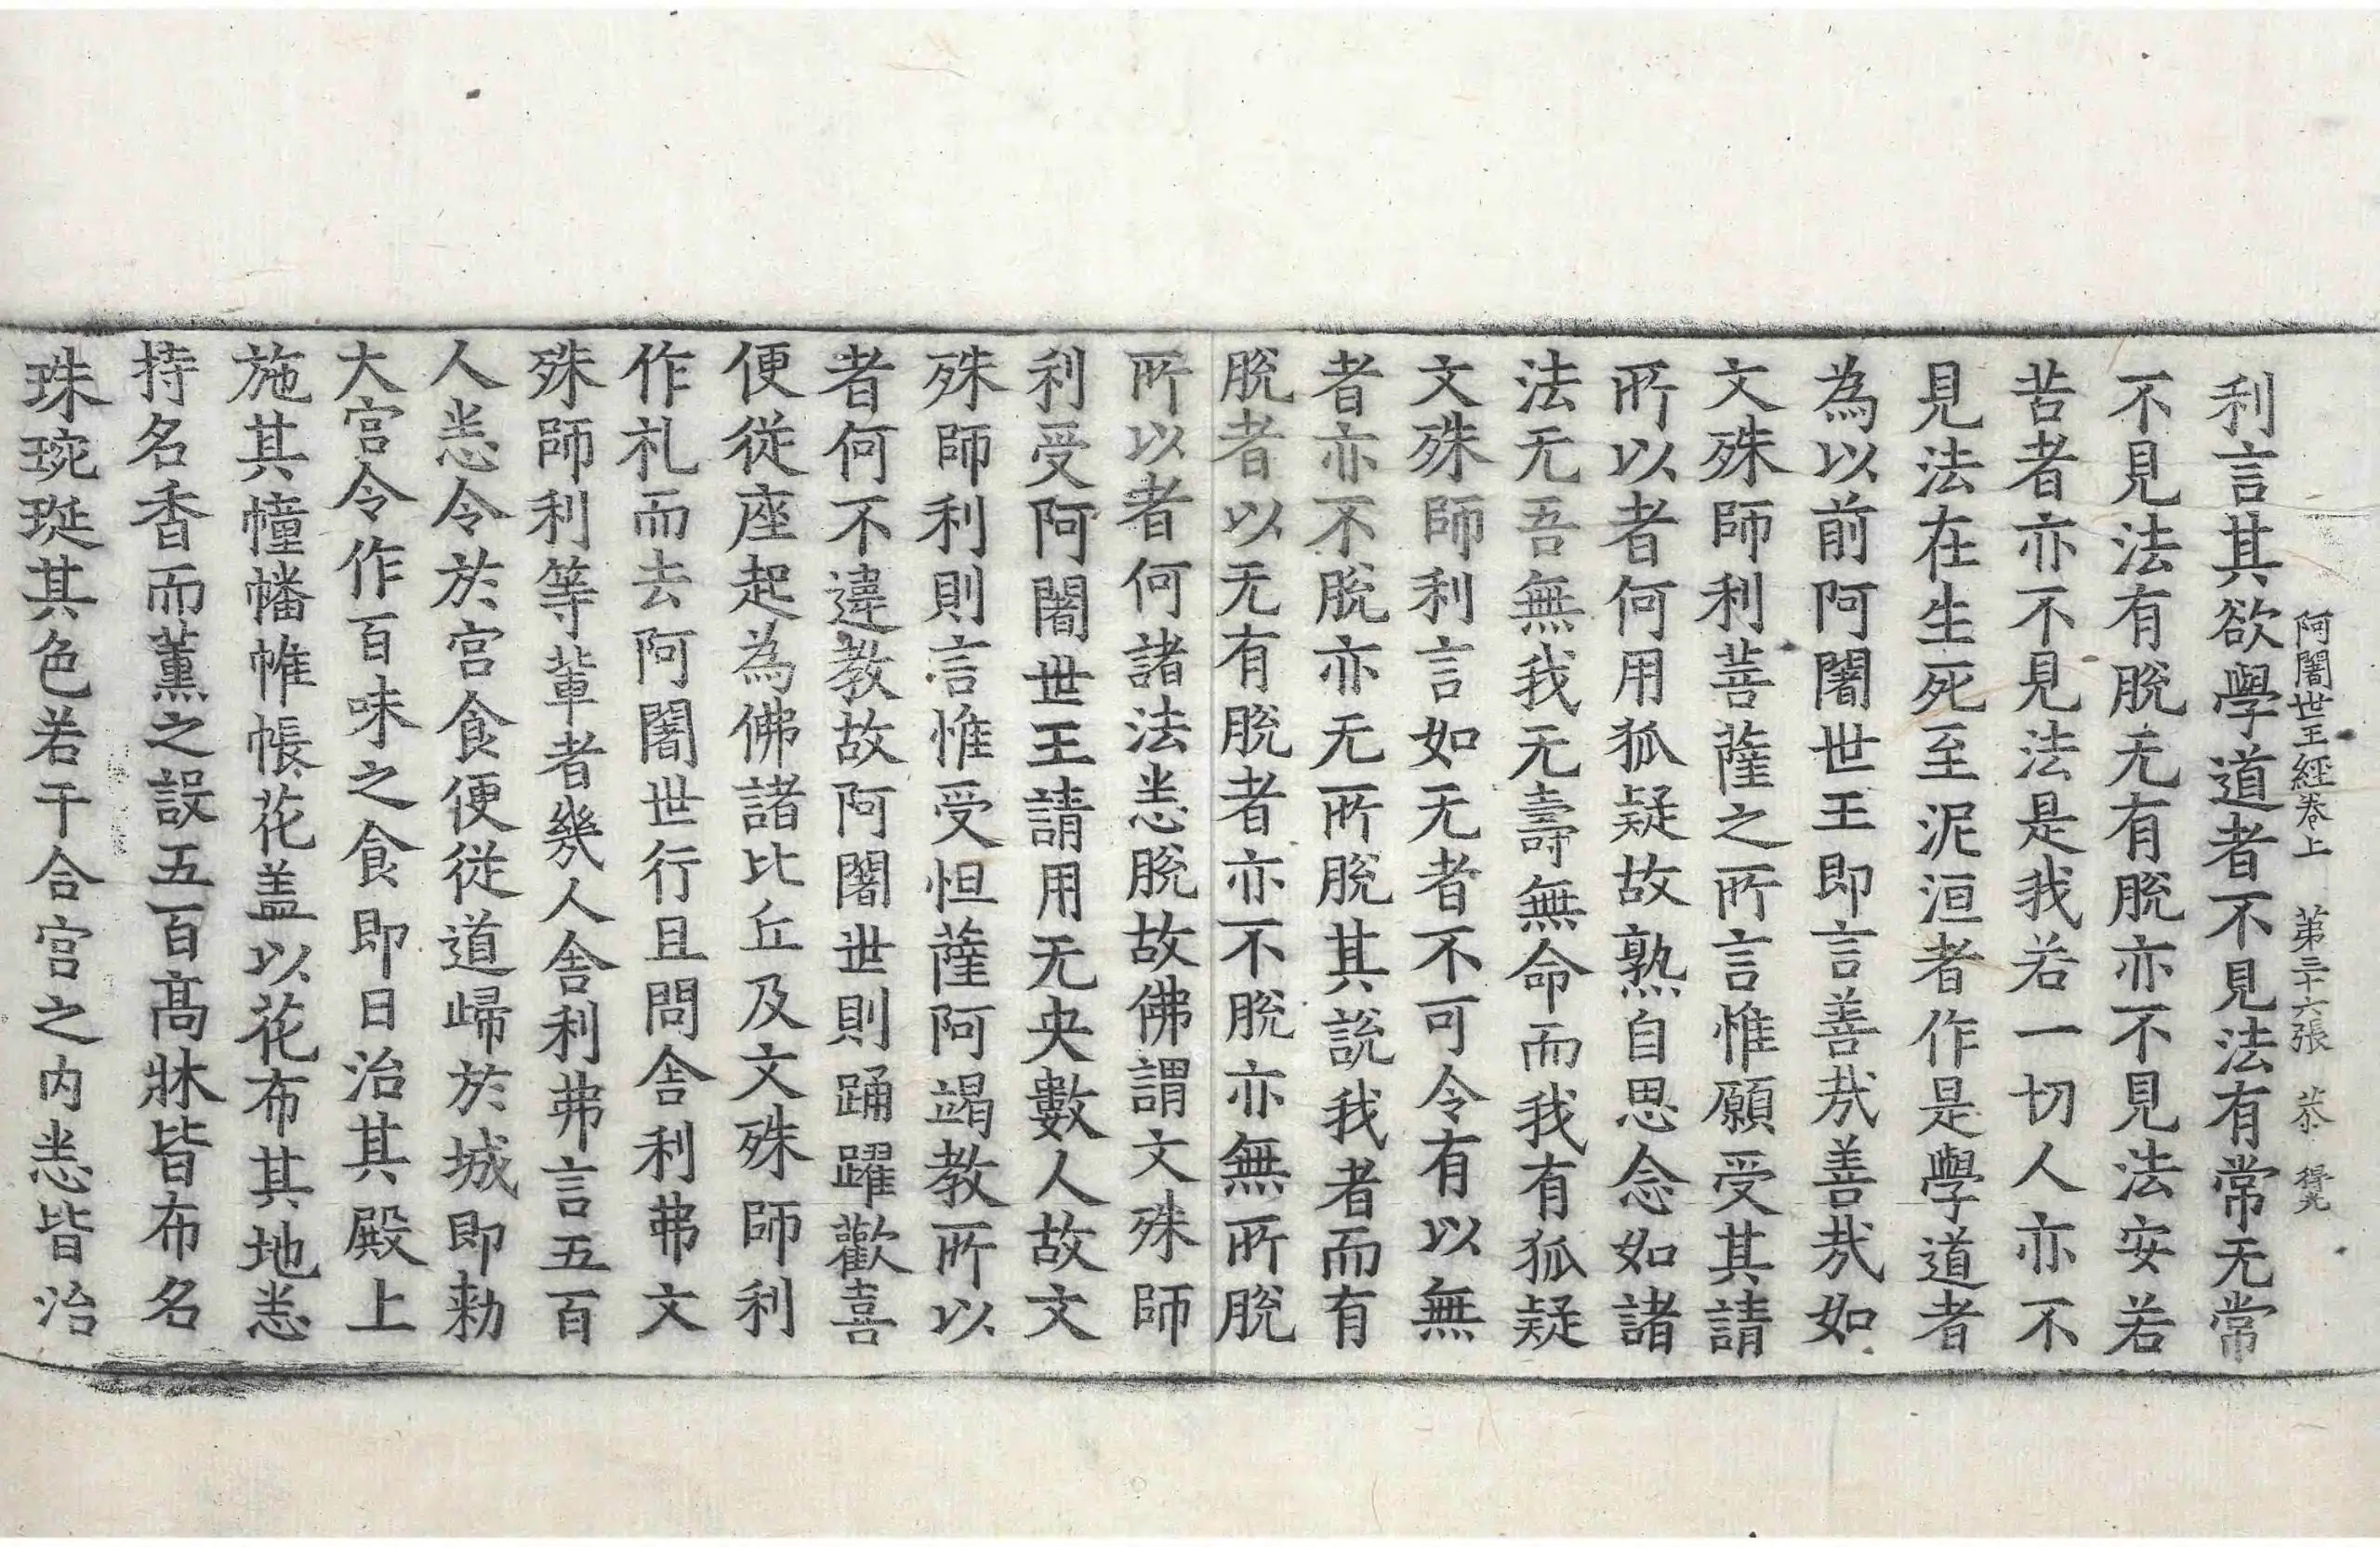 阿闍世王經卷上　第三十六張　恭　得光
利言其欲學道者不見法有常无常
不見法有脫无有脫亦不見法安若
苦者亦不見法是我若一切人亦不
見法在生死至泥洹者作是學道者
為以前阿闍世王即言善㢤善㢤如
文殊師利菩薩之所言惟願受其請
所以者何用狐疑故熟自思念如諸
法无吾無我无壽無命而我有狐疑
文殊師利言如无者不可令有以無
者亦不脫亦无所脫其說我者而有
脫者以无有脫者亦不脫亦無所脫
所以者何諸法悉脫故佛謂文殊師
利受阿闍世王請用无央數人故文
殊師利則言惟受怛薩阿竭教所以
者何不違教故阿闍世則踊躍歡喜
便從座起為佛諸比丘及文殊師利
作札而去阿闍世行且問舍利弗文
殊師利等軰者幾人舍利弗言五百
人悉令於宮食便從道歸於城即勑
大宮令作百味之食即日治其殿上
施其幢幡帷帳花盖以花布其地悉
持名香而薫之設五百髙牀皆布名
珠琬珽其色若干合宮之内悉皆治